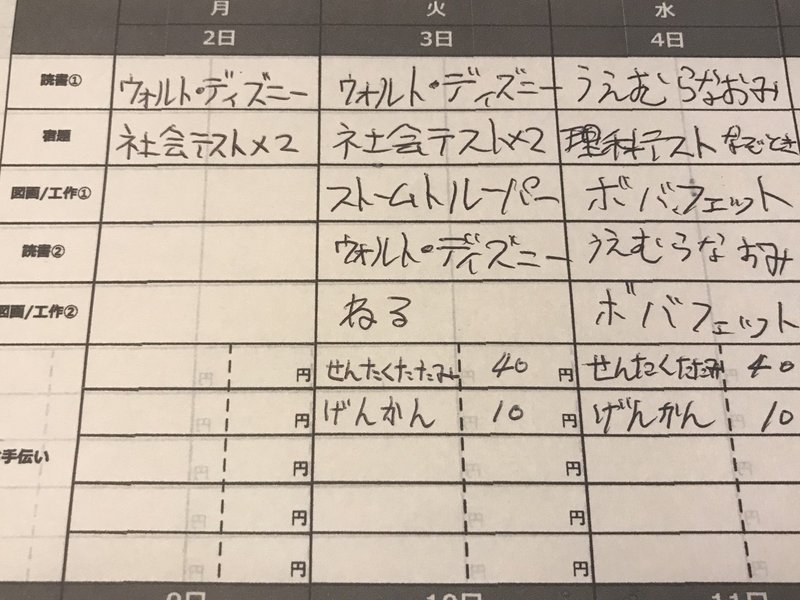 月 火 水
2日 3日 4日
読書① ウォルト・ディズニー ウォルト・ディズニー うえむらなおみ
宿題 社会テスト×2 社会テスト×2 理科テスト なぞとき
図画/工作① ストームトルーパー ボバフェット
読書② ウォルト・ディズニー うえむらなおみ
図画/工作② ねる ボバフェット
円 せんたくたたみ 40 円 せんたくたたみ 40
円 げんかん 10 円 げんかん 10
手伝い 円 円
円 円
円 円
9日 10日 11日